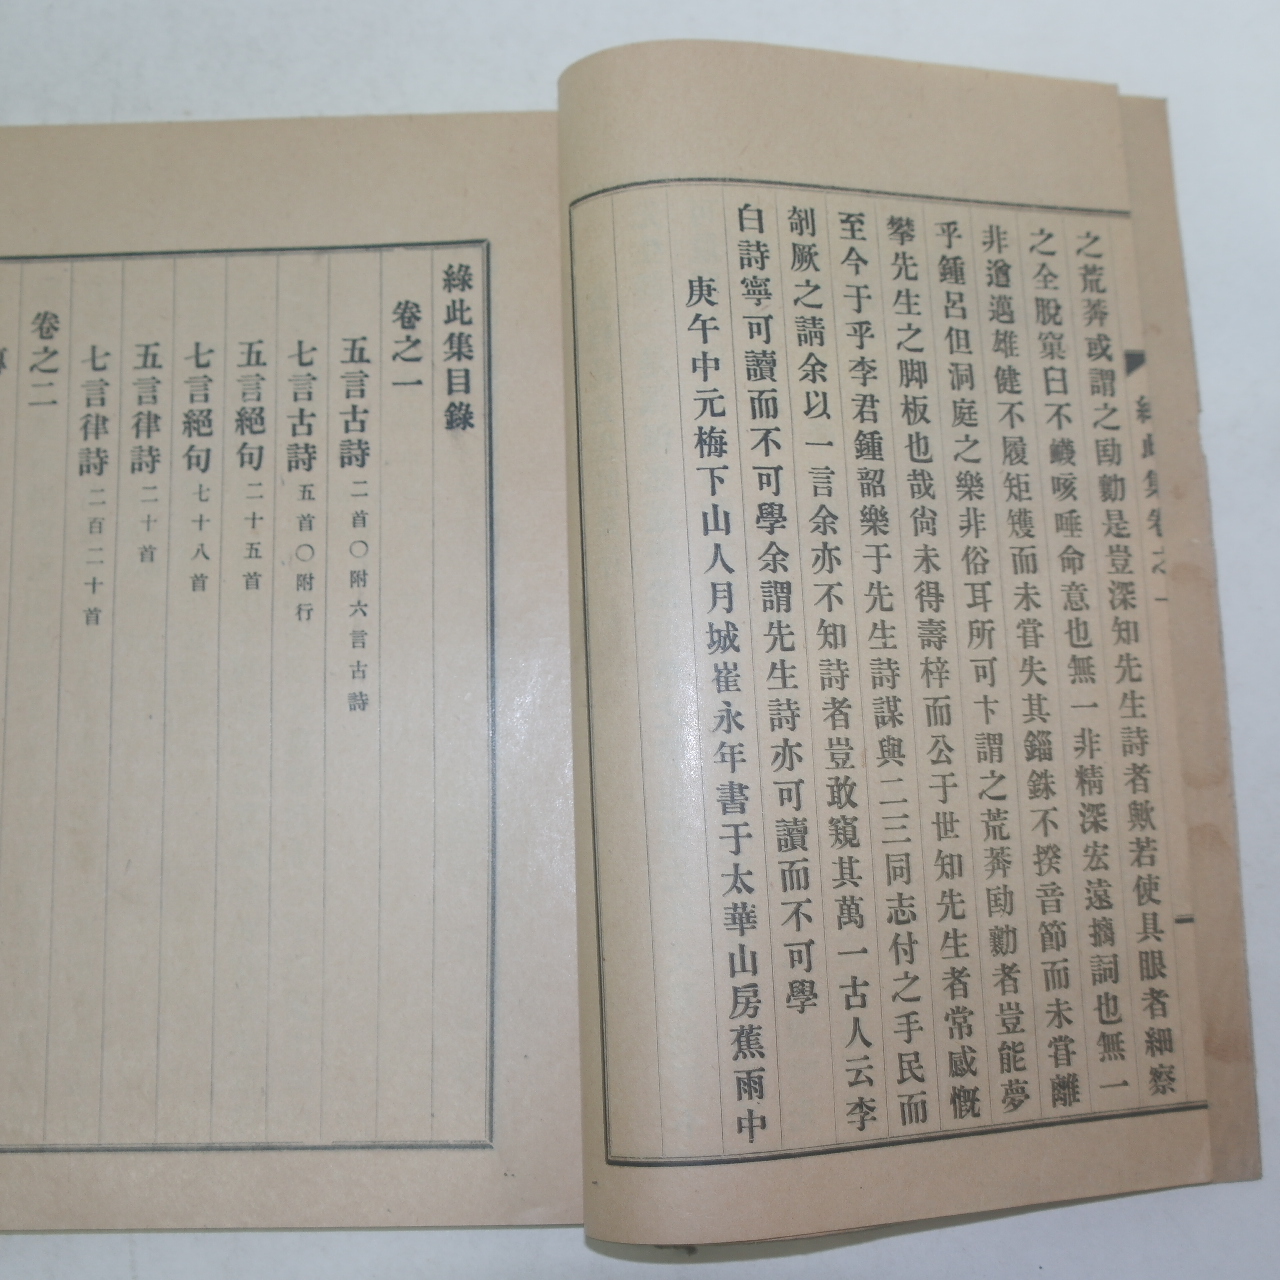 之荒莾或謂之勖勷是豈深知先生詩者歟若使具眼者細察
之全脫窠臼不蟣咳唾命意也無一非精深宏遠摛詞也無一
非遒邁雄健不履矩矱而未甞失其錙銖不揆音節而未甞離
乎鍾呂但洞庭之樂非俗耳所可卞謂之荒莾勖勷者豈能夢
攀先生之脚板也哉尙未得壽梓而公于世知先生者常感慨
至今于乎李君鍾韶樂于先生詩謀與二三同志付之手民而
剞厥之請余以一言余亦不知詩者豈敢窺其萬一古人云李
白詩寧可讀而不可學余謂先生詩亦可讀而不可學
庚午中元梅下山人月城崔永年書于太華山房蕉雨中
綠此集目錄
卷之一
五言古詩 二首〇附六言古詩
七言古詩 五首〇附行
五言絕句 二十五首
七言絕句 七十八首
五言律詩 二十首
七言律詩 二百二十首
卷之二